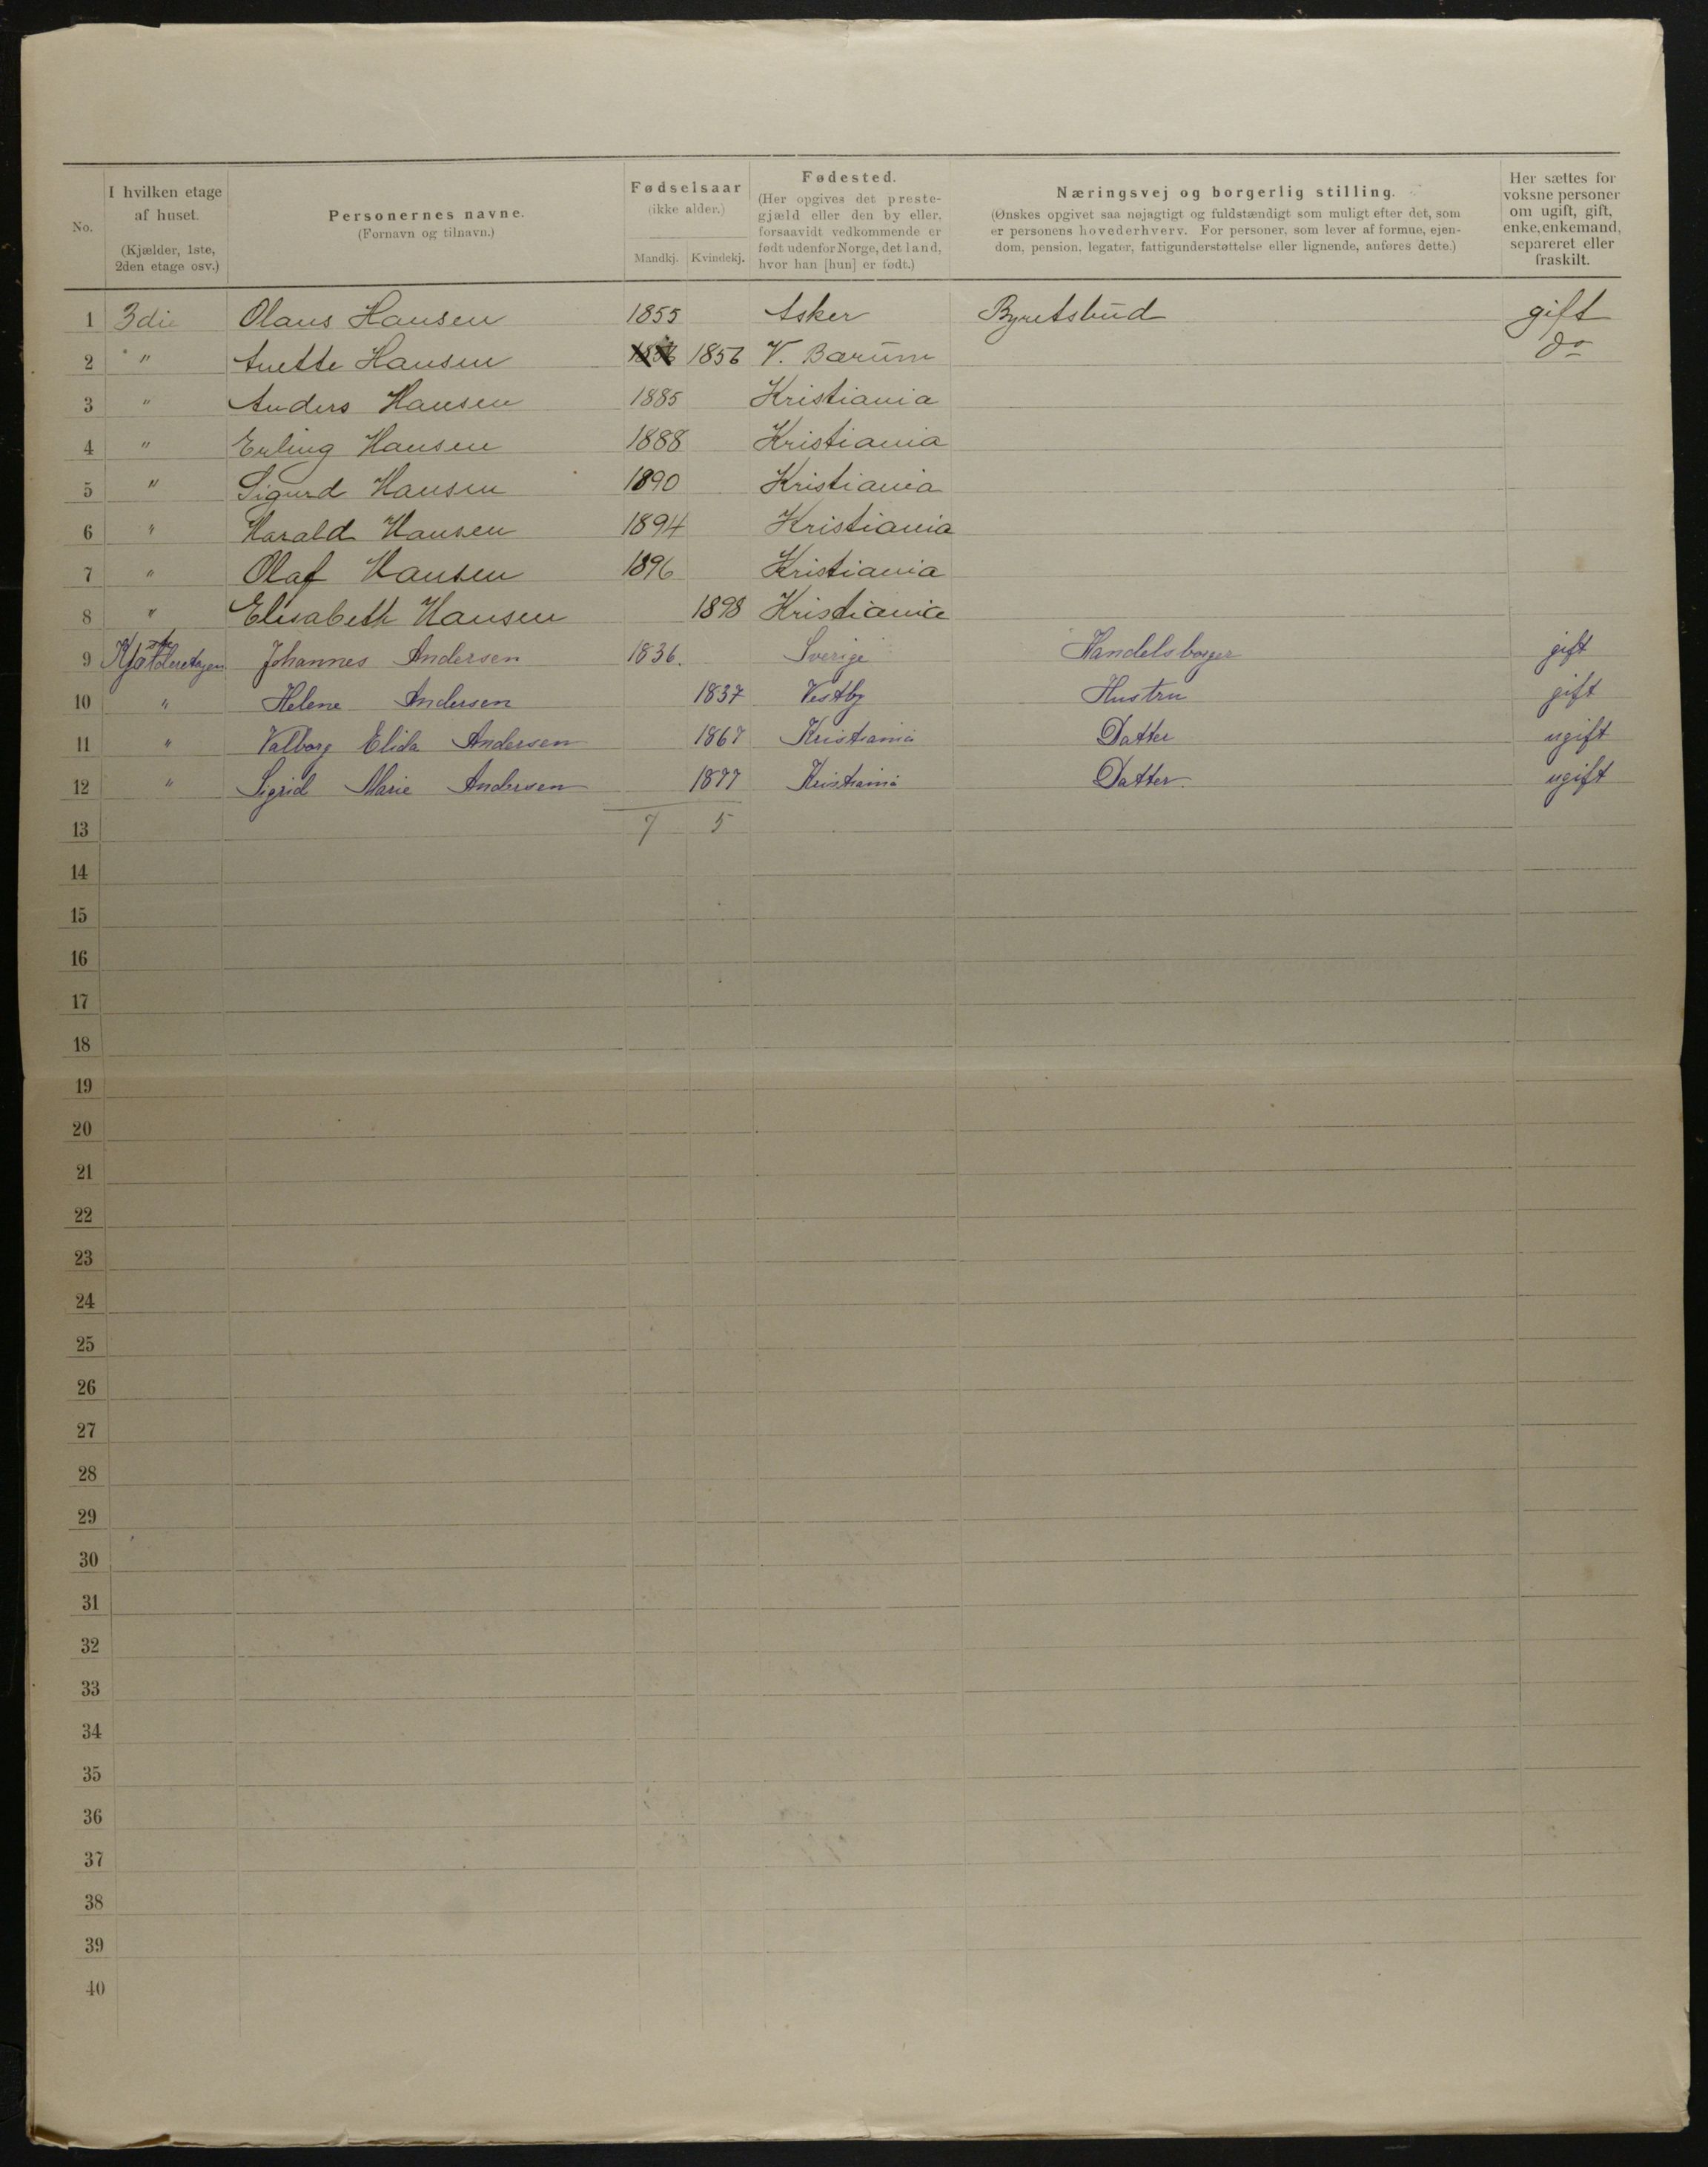 No.
I hvilken etage
af huset.
(Kjælder, 1ste,
2den etage osv.)
Personernes navne.
(Fornavn og tilnavn.)
Fødselsaar
(ikke alder.)
Mandkj. Kvindekj.
Fødested.
(Her opgives det preste-
gjæld eller den by eller,
forsaavidt vedkommende er
født udenfor Norge, det land,
hvor han [hun] er født.)
Næringsvej og borgerlig stilling.
(Ønskes opgivet saa nøjagtigt og fuldstændigt som muligt efter det, som
er personens hovederhverv. For personer, som lever af formue, ejen-
dom, pension, legater, fattigunderstøttelse eller lignende, anføres dette.)
Her sættes for
voksne personer
om ugift, gift,
enke, enkemand,
separeret eller
fraskilt.
1 3die Olaus Hansen 1855 Asker Byretsbud gift
2 " Anette Hansen 1856 1856 V. Barum do
3 " Anders Hansen 1885 Kristiania
4 " Erling Hansen 1888 Kristiania
5 " Sigurd Hansen 1890 Kristiania
6 " Harald Hansen 1894 Kristiania
7 " Olaf Hansen 1896 Kristiania
8 " Elisabeth Hansen 1898 Kristiania
9 Johannes Andersen 1836. Sverige Handelsborger gift
10 " Helene Andersen 1837 Vestby Hustru gift
11 " Valborg Elida Andersen 1867 Kristiania Datter ugift
12 " Sigrid Marie Andersen 1877 Kristiania Datter. ugift
13 7 5
14
15
16
17
18
19
20
21
22
23
24
25
26
27
28
29
30
31
32
33
34
35
36
37
38
39
40